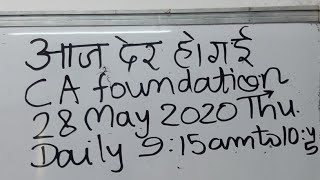 आज देर हो गई
CA foundation
28 May 2020 Thu.
Daily 9:15am to 10:45